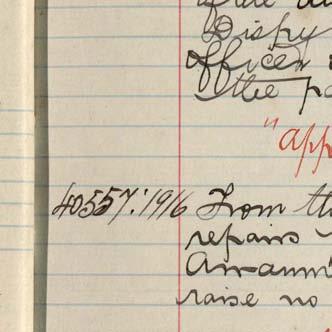 Dispy
officer
the pa
"app
40557:1916 From th
repairs
raise no